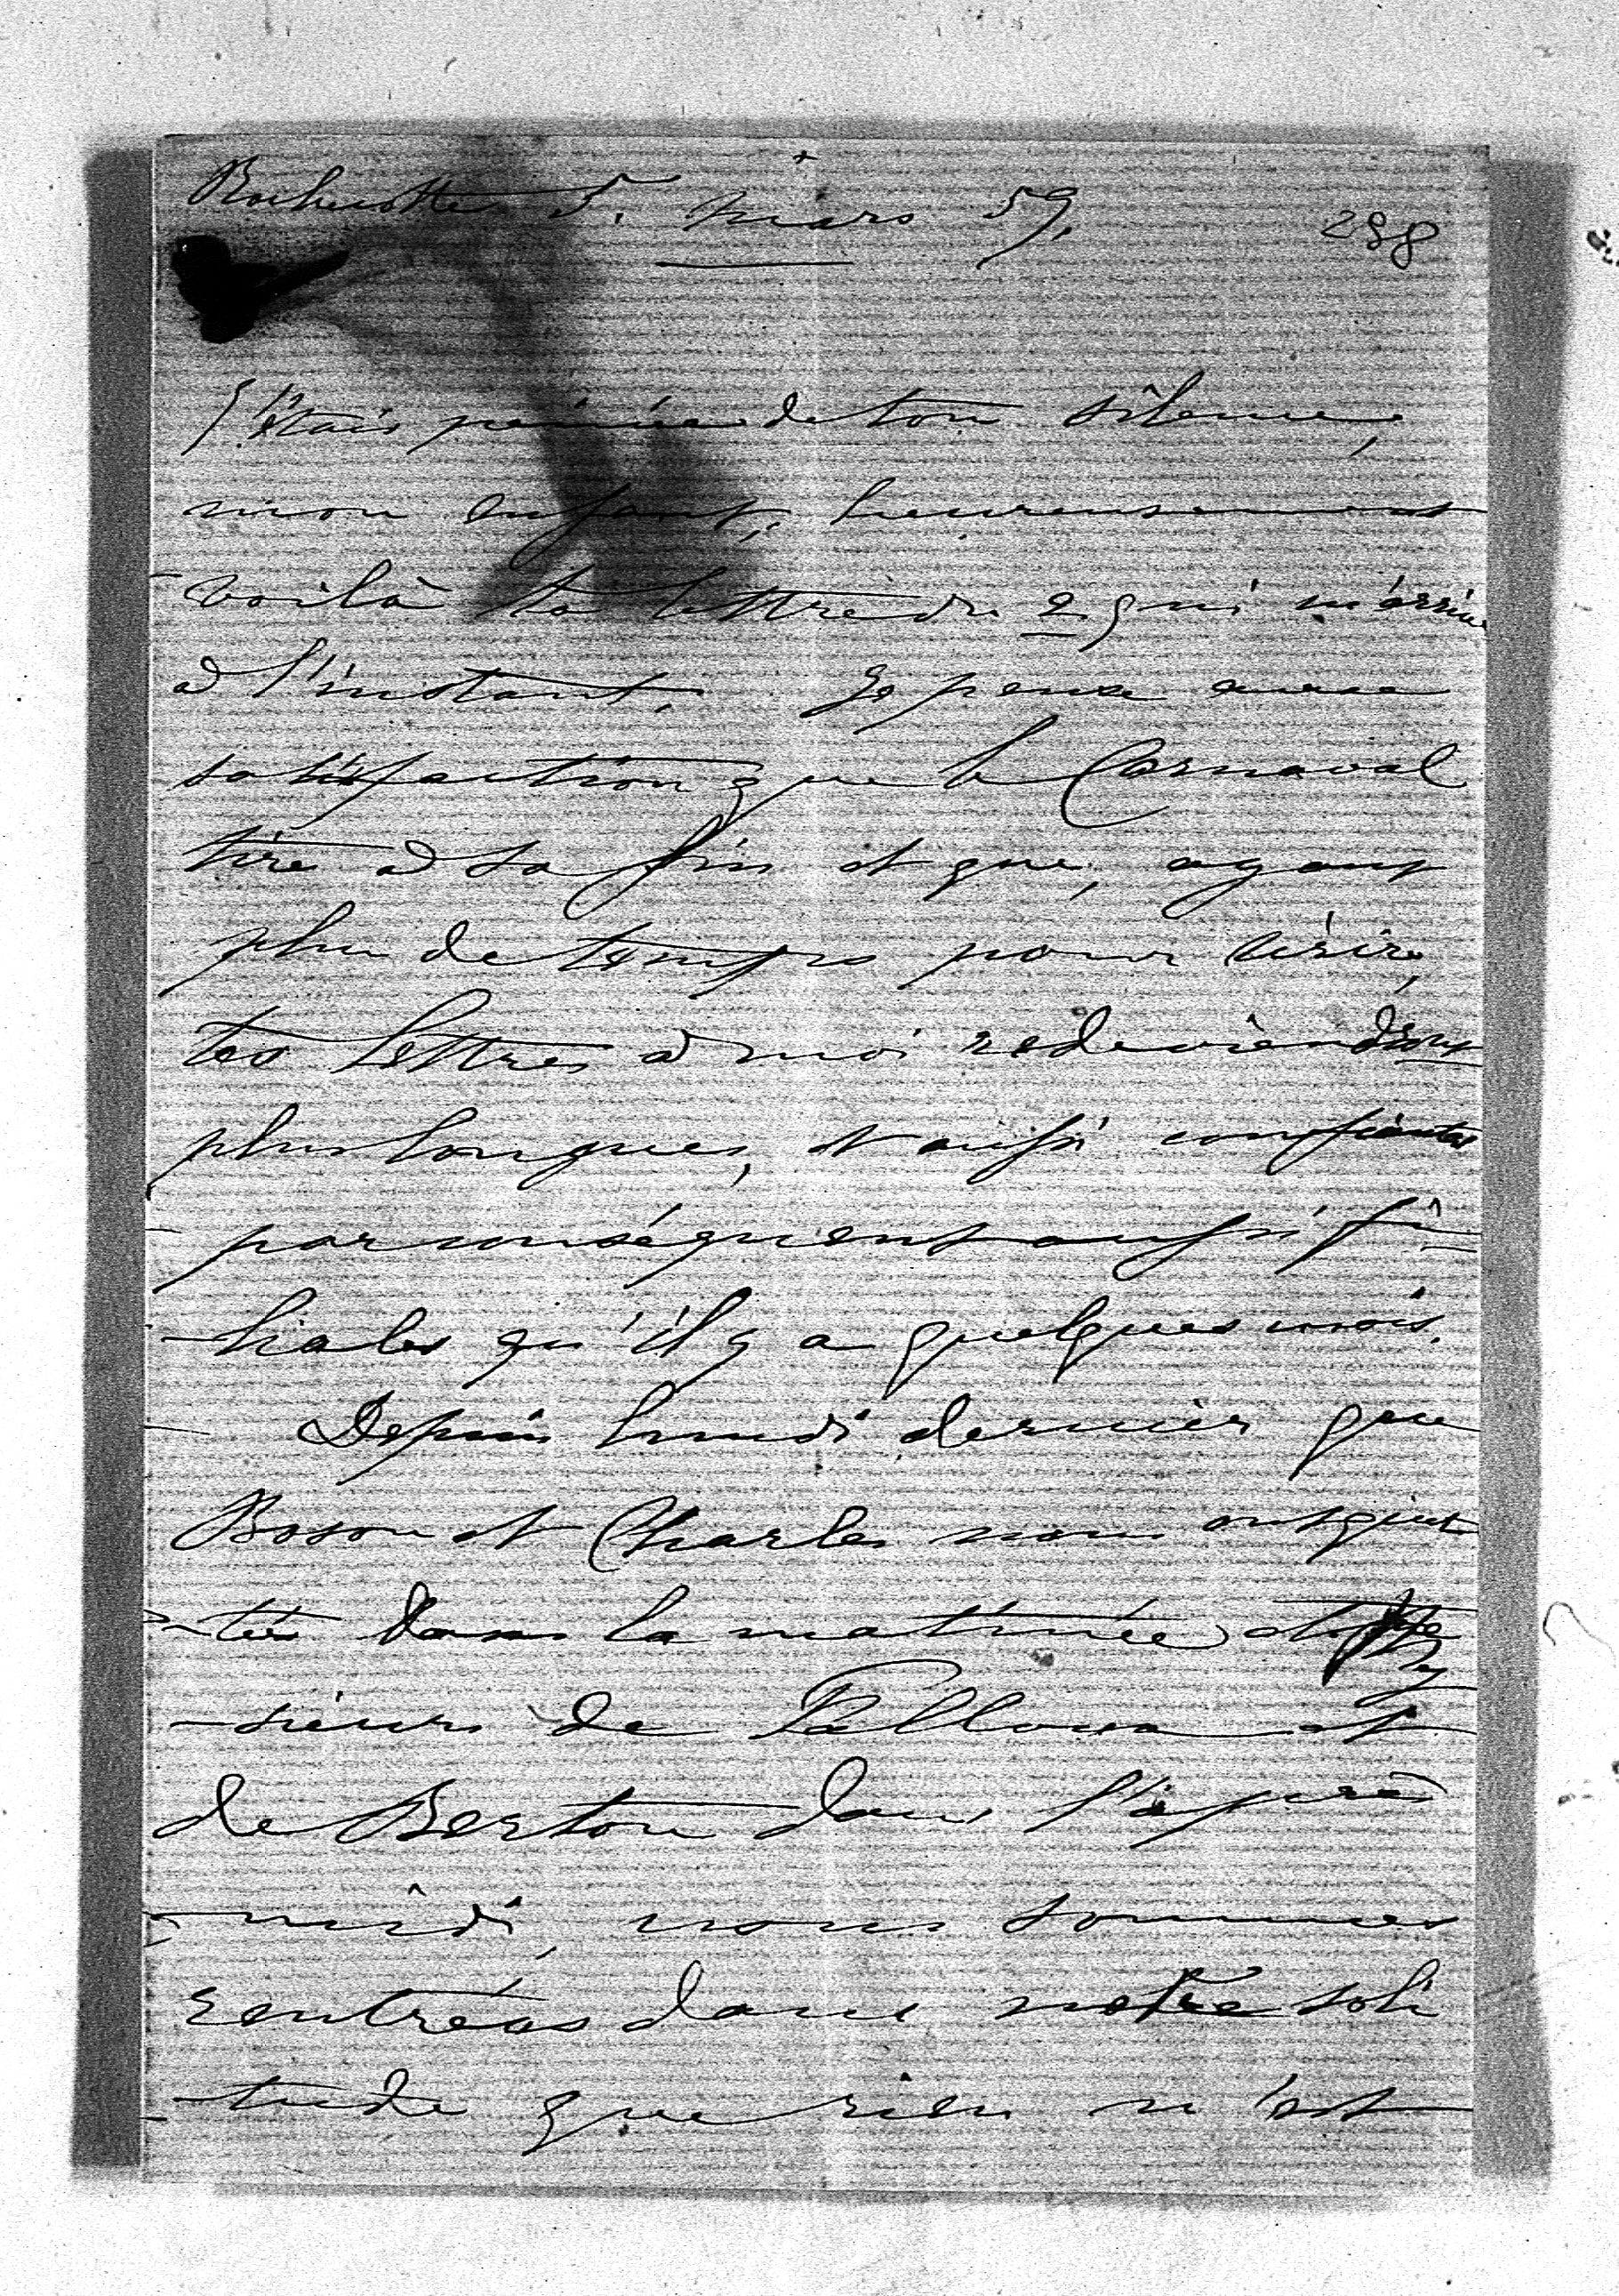 Rochecotte 5. mars 59.
298
J'étais peinée de ton silence,
mon enfant, heureusement
voilà ta lettre du 2 qui m'arrive
à l'instant. Je pense avec
satisfaction que le Carnaval
tire à sa fin et que, ayant
plus de temps pour écrire,
tes lettres à moi redeviendront
plus longues, et aussi confiantes
par conséquent aussi fi-
-liales qu'il y a quelques mois.
Depuis lundi dernier que
Boson et Charles nous ont quit-
-tés dans la matinée et
-sieurs de Falloux et
de Berton dans l'après
-midi, nous sommes
rentrées dans notre soli
-tude que rien n'est